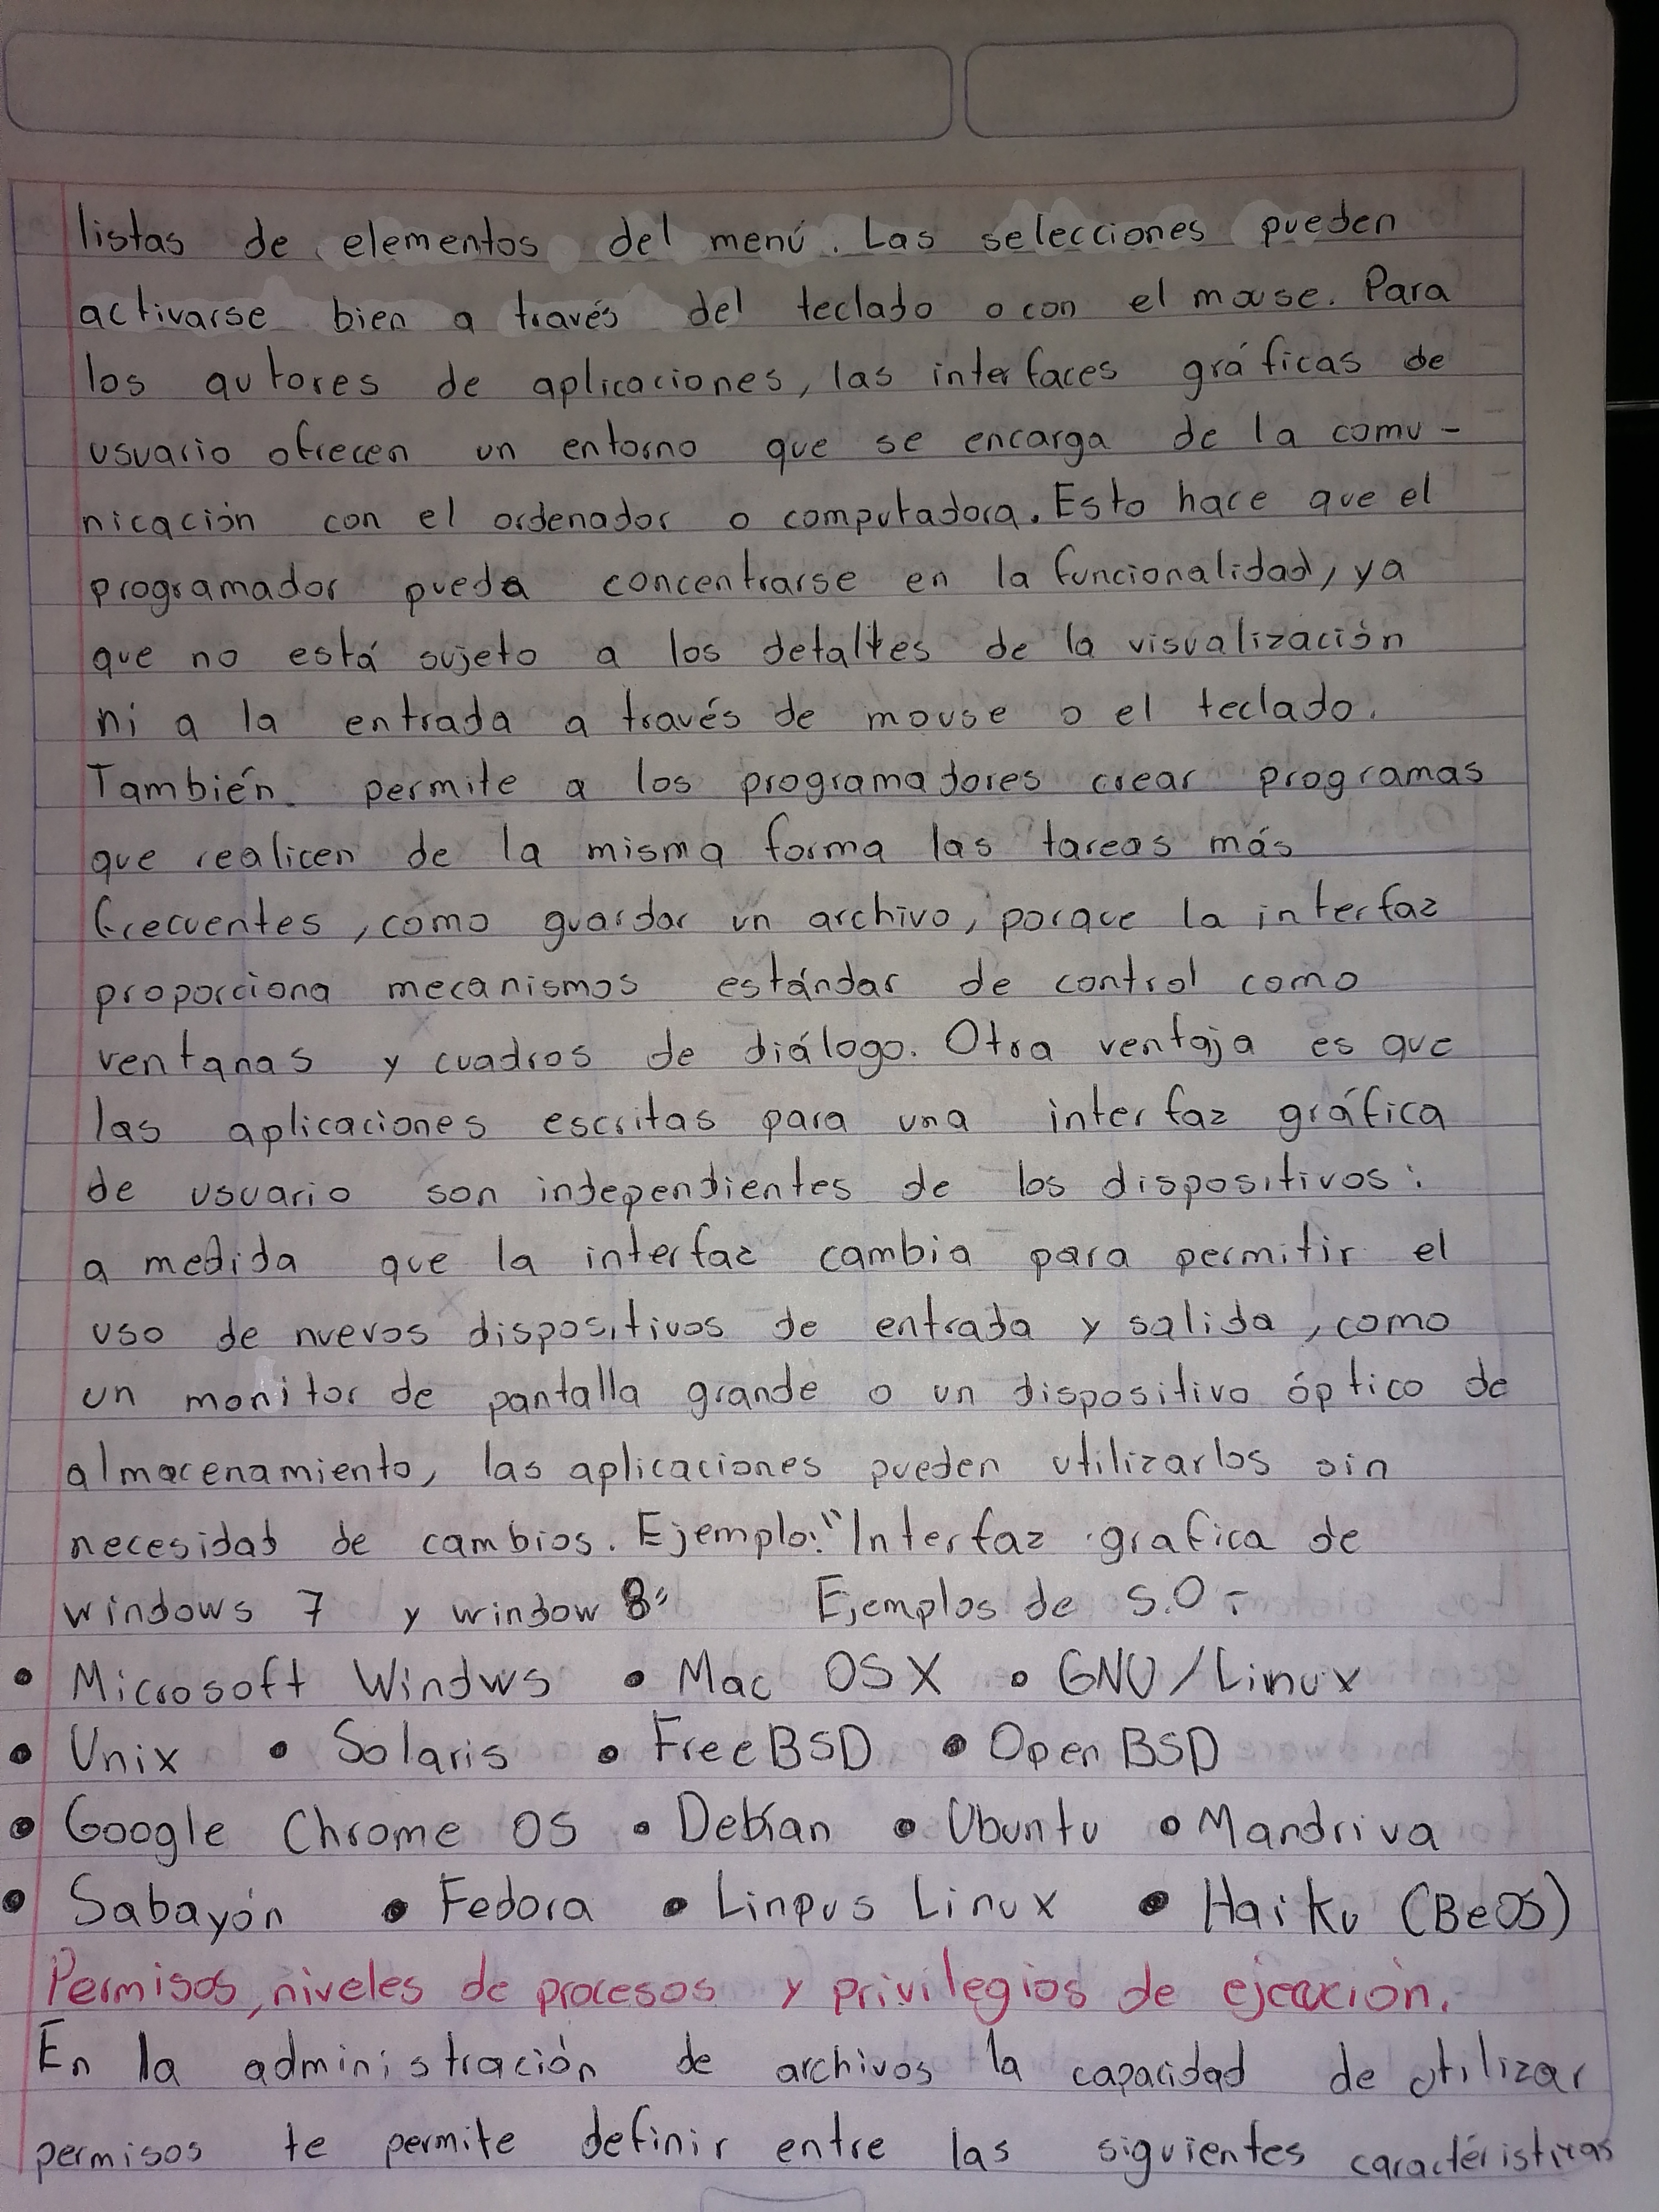 listas de elementos del menú. Las selecciones pueden
activarse bien a través del teclado o con el mouse. Para
los autores de aplicaciones, las interfaces gráficas de
usuario ofrecen un entorno que se encarga de la comu-
nicación con el ordenador o computadora. Esto hace que el
programador pueda concentrarse en la funcionalidad, ya
que no está sujeto a los detalles de la visualización
ni a la entrada a través de mouse o el teclado.
También permite a los programadores crear programas
que realicen de la misma forma las tareas más
frecuentes, como guardar un archivo, porque la interfaz
proporciona mecanismos estándar de control como
ventanas y cuadros de diálogo. Otra ventaja es que
las aplicaciones escritas para una interfaz gráfica
de usuario son independientes de los dispositivos:
a medida que la interfaz cambia para permitir el
uso de nuevos dispositivos de entrada y salida, como
un monitor de pantalla grande o un dispositivo óptico de
almacenamiento, las aplicaciones pueden utilizarlos sin
necesidad de cambios. Ejemplo: "Interfaz grafica de
windows 7 y window 8" Ejemplos de S.O:
• Microsoft Windws • Mac OS X • GNU/Linux
• Unix • Solaris • FreeBSD • Open BSD
• Google Chrome OS • Debian • Ubuntu • Mandriva
• Sabayón • Fedora • Linpus Linux • Haiku (BeOS)
Permisos, niveles de procesos y privilegios de ejecución.
En la administración de archivos la capacidad de utilizar
permisos te permite definir entre las siguientes carácterísticas